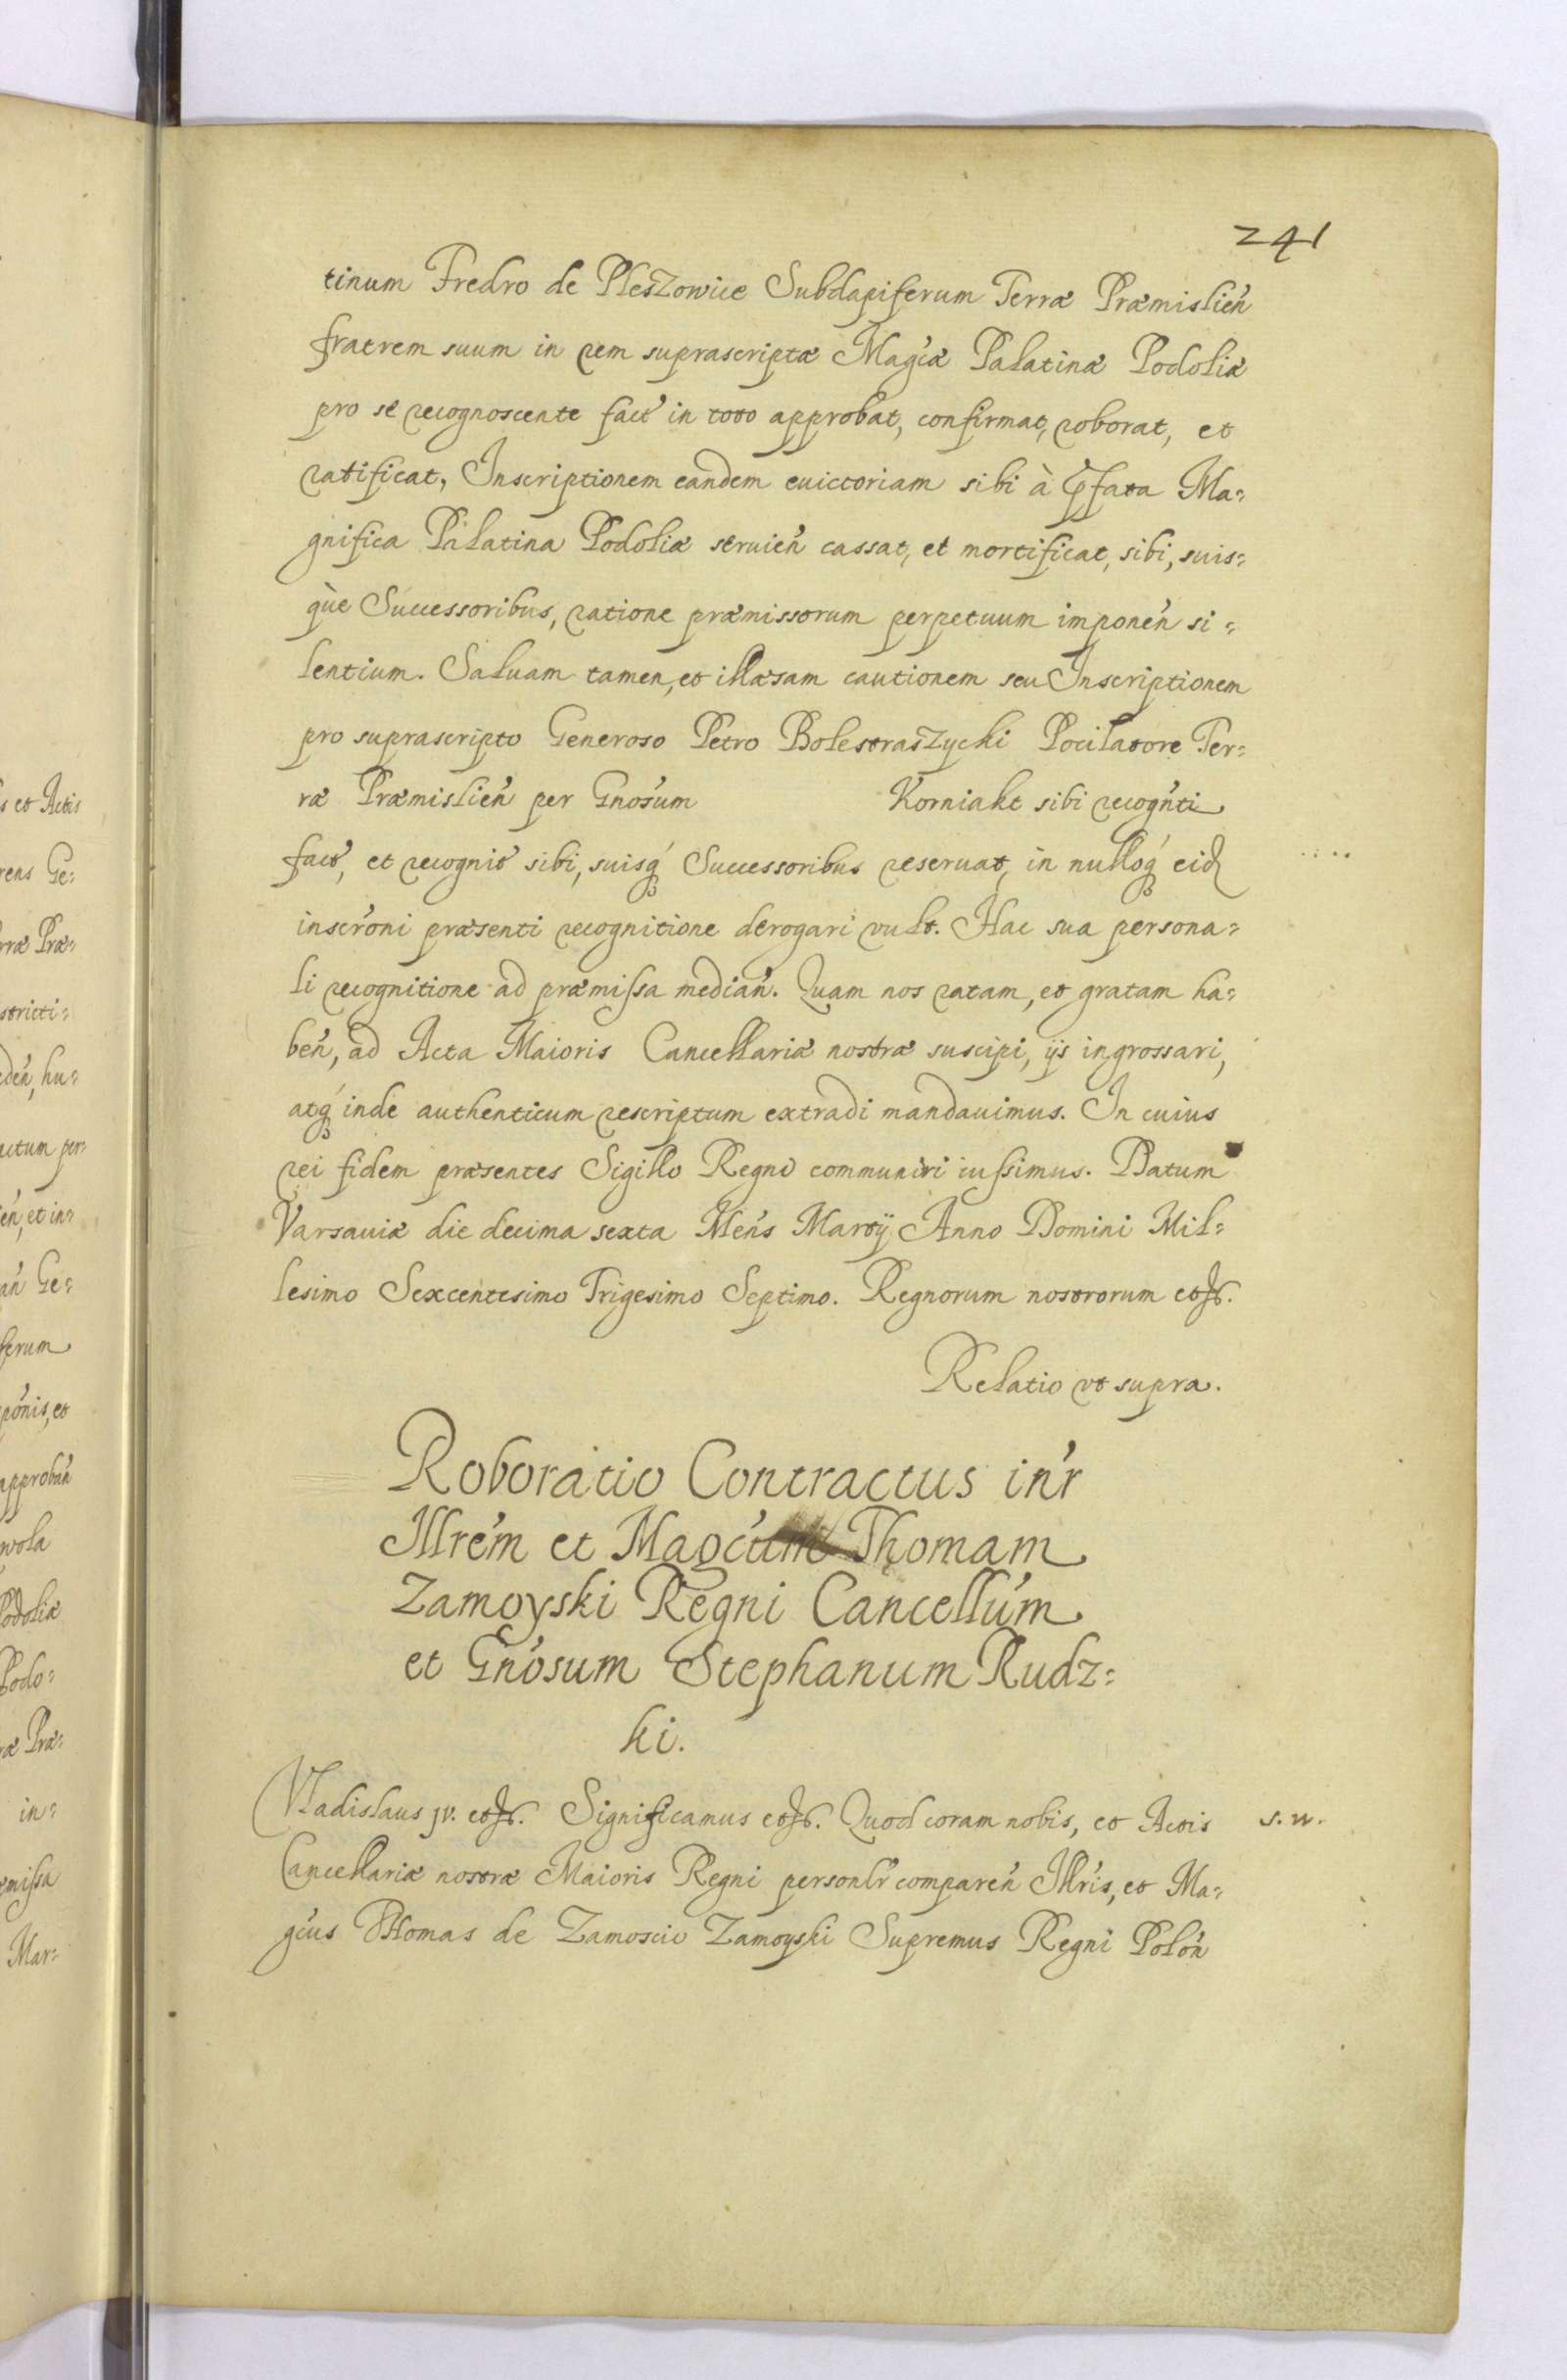 241
tinum Fredro de Pleszowice Subdapiferum Terræ Præmislień
fratrem suum in rem suprascriptæ Mag'cæ Palatinæ Podoliæ
pro se recognoscente fact' in toto approbat, confirmat, roborat, et
ratificat, Inscriptionem eandem euictoriam sibi à p̄fata Ma=
gnifica Palatina Podoliæ seruień cassat, et mortificat, sibi, suis=
q̀ue Successoribus, ratione præmissorum perpetuum imponeń si=
lentium. Saluam tamen, et illæsam cautionem seu Inscriptionem
pro suprascripto Generoso Petro Bolestraszycki Pocilatore Ter=
ræ Præmislień per Gnosum Korniakt sibi recogn'ti
fact', et recognit' sibi, suisq́ Successoribus reseruat, in nulloq́ eid
inscr'oni præsenti recognitione derogari vult. Hac sua persona=
li recognitione ad præmissa mediań. Quam nos ratam, et gratam ha=
beń, ad Acta Maioris Cancellariæ nostræ suscipi, ijs ingrossari,
atq́ inde authenticum rescriptum extradi mandauimus. In cuius
rei fidem præsentes Sigillo Regni communiri iussimus. Datum
Varsauiæ die decima sexta Meńs Martij Anno Domini Mil=
lesimo Sexcentesimo Trigesimo Septimo. Regnorum nostrorum etc.
Relatio vt supra.
Roboratio Contractus in'r
Illrém et Magcúm Thomam
Zamoyski Regni Cancellúm
et Gnósum Stephanum Rudz=
ki.
Vladislaus jv. etc. Significamus etc. Quod coram nobis, et Actis s. n.
Cancellariæ nostræ Maioris Regni personlr' compareń Illr'is, et Ma=
gcús Thomas de Zamoscio Zamoyski Supremus Regni Polóń
s et Actis
rens Ge=
rræ Præ=
stricti=
deń, hu=
actum per=
eń, et in=
ań Ge=
ferum
pónis, et
approbań
wola
Podoliæ
Podo=
ræ Præ=
in=
æmissa
Mar=